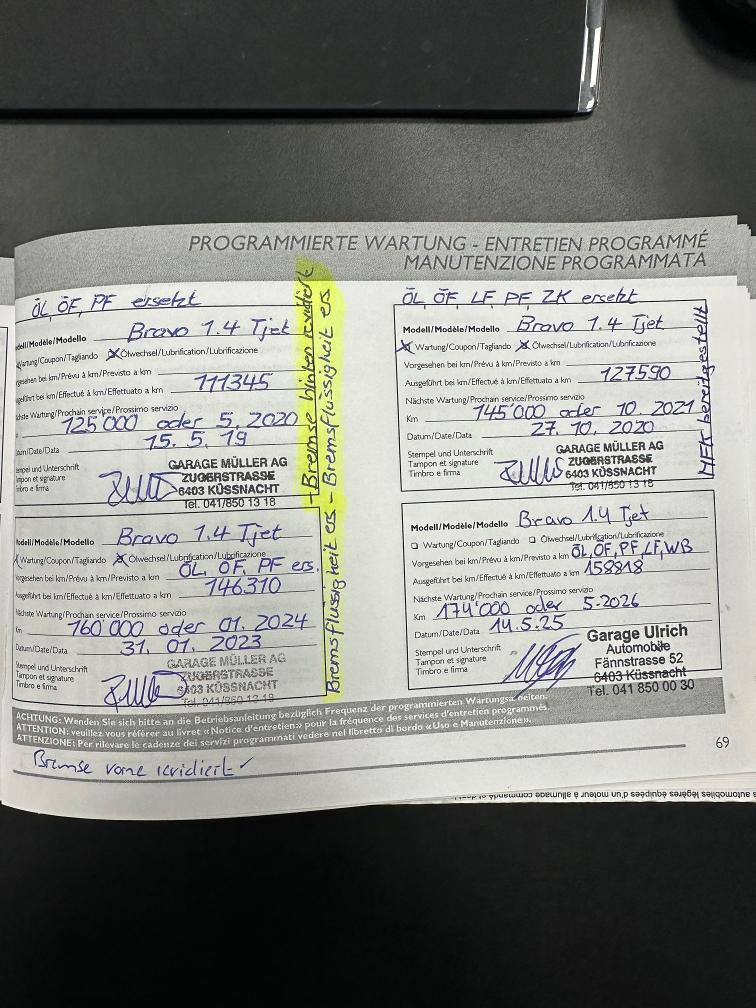 PROGRAMMIERTE WARTUNG - ENTRETIEN PROGRAMMÉ
MANUTENZIONE PROGRAMMATA
ÖL, ÖF, PF ersetzt
Modell/Modèle/Modello Bravo 1.4 Tjet
Wartung/Coupon/Tagliando x Ölwechsel/Lubrification/Lubrificazione
gesehen bei km/Prévu à km/Previsto a km
geführt bei km/Effectué à km/Effettuato a km 111345
chste Wartung/Prochain service/Prossimo servizio
125'000 oder 5. 2020
tum/Date/Data 15. 5. 19
tempel und Unterschrift
Tampon et signature
Timbro e firma
GARAGE MÜLLER AG
ZUGERSTRASSE
6403 KÜSSNACHT
Tel. 041/850 13 18
Modell/Modèle/Modello Bravo 1.4 Tjet
x Wartung/Coupon/Tagliando x Ölwechsel/Lubrification/Lubrificazione
Vorgesehen bei km/Prévu à km/Previsto a km ÖL, ÖF, PF ers.
Ausgeführt bei km/Effectué à km/Effettuato a km 146310
Nächste Wartung/Prochain service/Prossimo servizio
Km 160'000 oder 01. 2024
Datum/Date/Data 31. 01. 2023
Stempel und Unterschrift
Tampon et signature
Timbro e firma
GARAGE MÜLLER AG
ZUGERSTRASSE
6403 KÜSSNACHT
Tel. 041/850 13 18
- Bremse hinten revidiert
- Bremsflüssigkeit ers
Bremsflüssigkeit ers
ÖL, ÖF, LF, PF, ZK ersetzt
Modell/Modèle/Modello Bravo 1.4 Tjet
x Wartung/Coupon/Tagliando x Ölwechsel/Lubrification/Lubrificazione
Vorgesehen bei km/Prévu à km/Previsto a km
Ausgeführt bei km/Effectué à km/Effettuato a km 127590
Nächste Wartung/Prochain service/Prossimo servizio
Km 145'000 oder 10. 2021
Datum/Date/Data 27. 10. 2020
Stempel und Unterschrift
Tampon et signature
Timbro e firma
GARAGE MÜLLER AG
ZUGERSTRASSE
6403 KÜSSNACHT
Tel. 041/850 13 18
MFK bereitgestellt
Modell/Modèle/Modello Bravo 1.4 Tjet
☐ Wartung/Coupon/Tagliando ☐ Ölwechsel/Lubrification/Lubrificazione
Vorgesehen bei km/Prévu à km/Previsto a km ÖL, ÖF, PF, LF, WB
Ausgeführt bei km/Effectué à km/Effettuato a km 158818
Nächste Wartung/Prochain service/Prossimo servizio
Km 174'000 oder 5.2026
Datum/Date/Data 14.5.25
Stempel und Unterschrift
Tampon et signature
Timbro e firma
Garage Ulrich
Automobile
Fännstrasse 52
6403 Küssnacht
Tel. 041 850 00 30
ACHTUNG: Wenden Sie sich bitte an die Betriebsanleitung bezüglich Frequenz der programmierten Wartungsarbeiten.
ATTENTION: veuillez vous référer au livret «Notice d'entretien» pour la fréquence des services d'entretien programmés.
ATTENZIONE: Per rilevare le cadenze dei servizi programmati vedere nel libretto di bordo «Uso e Manutenzione».
Bremse vorne revidiert ✓
69
automobiles légères équipées d'un moteur à allumage commandé et